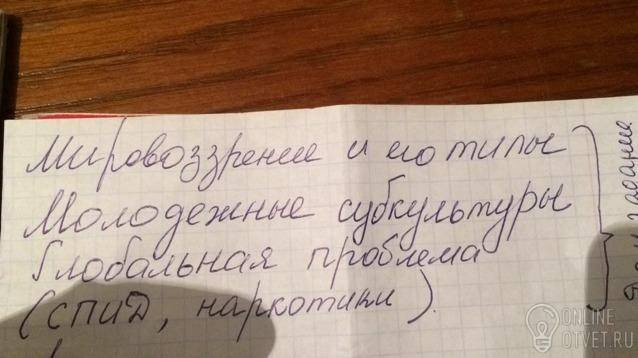 Мировоззрение и его типы
Молодежные субкультуры
Глобальная проблема
(СПИД, наркотики).
задание
ONLINE
OTVET.RU